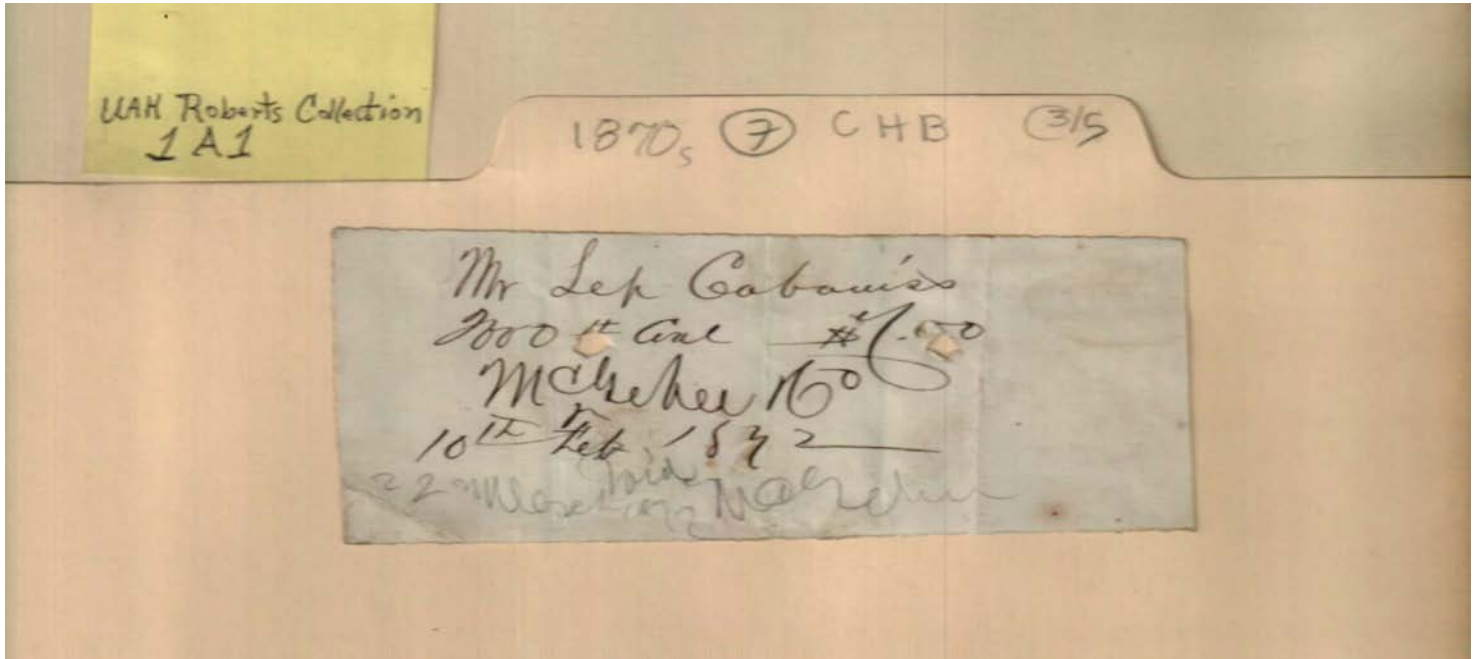 UAH Roberts Collection
1A1
1870s 7 CHB 3/5
Mr Sep Cabaniss
2000 lb Coal $7.00
McGehee & Co
10th Feb 1872
22nd March Paid McGehee